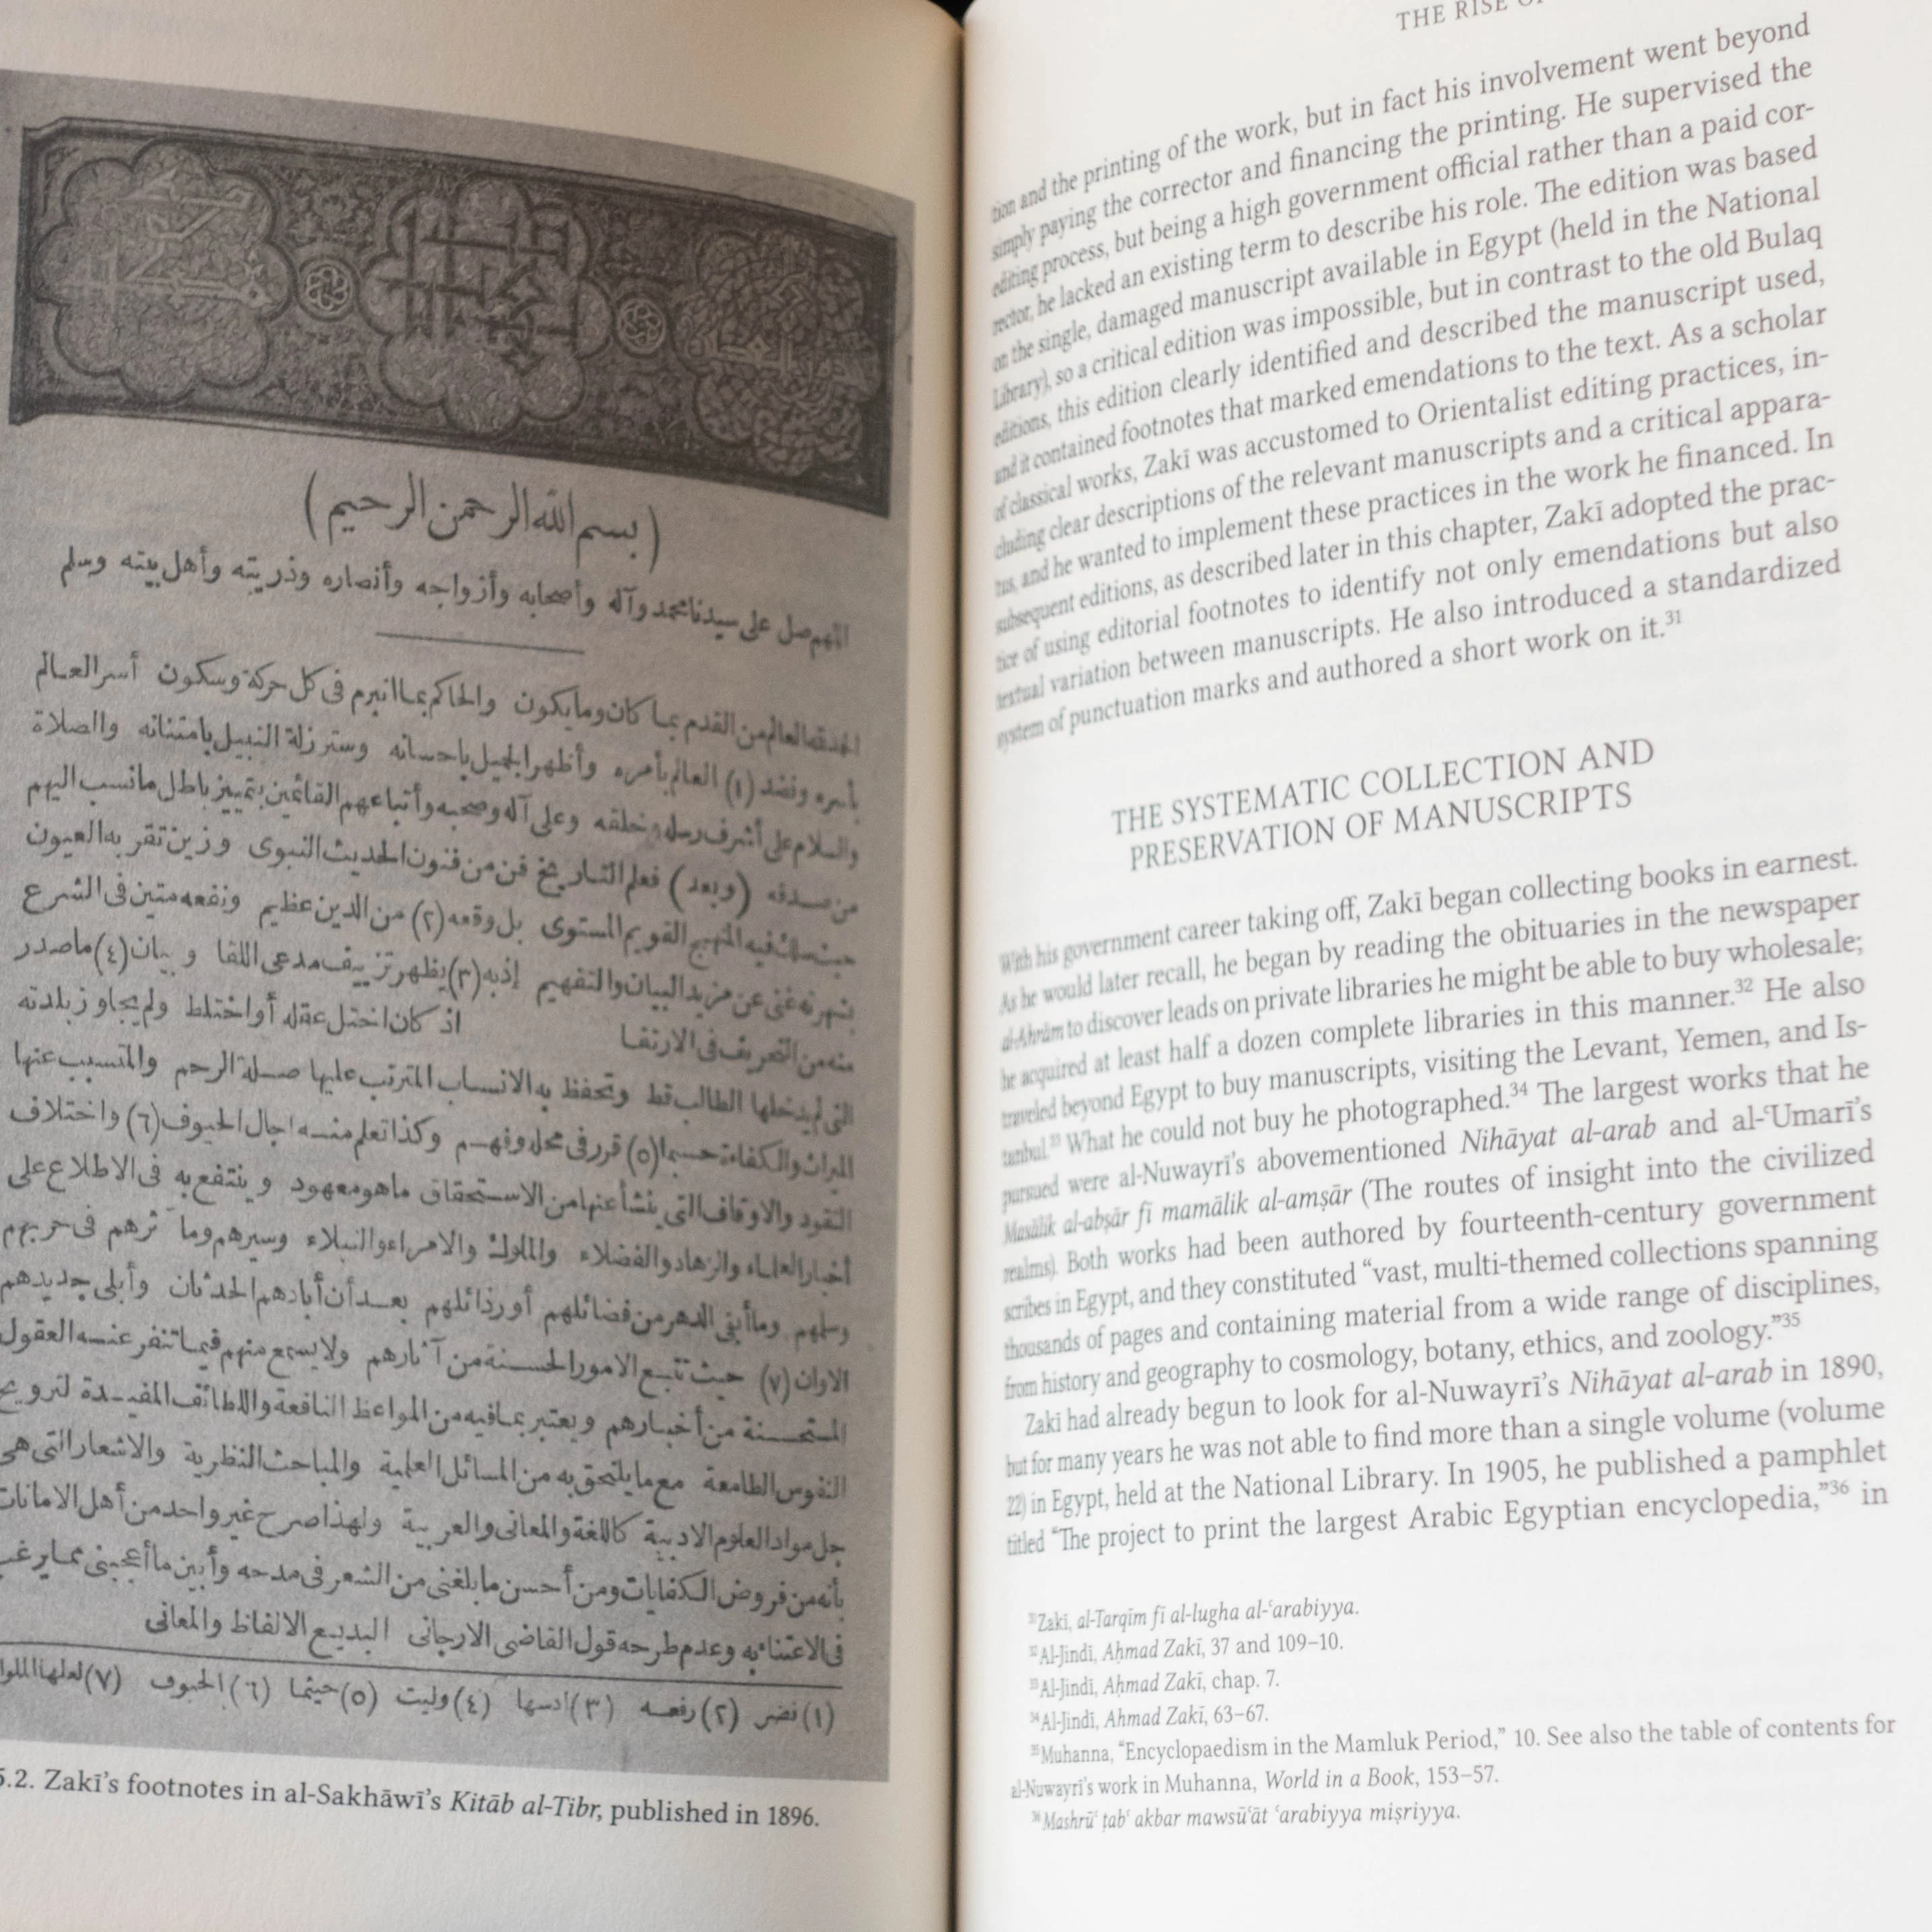 (بسم الله الرحمن الرحيم)
اللهم صل على سيدنا محمد وآله وأصحابه وأزواجه وأنصاره وذريته وأهل بيته وسلم
الحمد لله العالم من القدم بما كان وما يكون والحاكم بما انبرم فى كل حركة وسكون أسر العالم
بأسره وفضد (١) العالم بأمره وأظهر الجميل باحسانه وستر زلة النبيل بامتنانه والصلاة
والسلام على أشرف رسله وخلقه وعلى آله وصحبه وأتباعهم القائمين بتمييز باطل ما نسب اليهم
من صدقه (وبعد) فعلم التاريخ فن من فنون الحديث النبوى وزين تقر به العيون
حيث سلك فيه المنهج القويم المستوى بل وقعه (٢) من الدين عظيم ونفعه متين فى الشرع
بشهرته غنى عن مزيد البيان والتفهيم إذ به (٣) يظهر تزييف مدعى اللقا وبيان (٤) ما صدر
منه من التحريف فى الارتقا اذ كان اختل عقله أو اختلط ولم يجاوز بلدته
التى لم يدخلها الطالب قط وتحفظ به الانساب المترتب عليها صلة الرحم والمتسبب عنها
الميراث والكفاءة حسبما (٥) قرر فى محله وفهم وكذا تعلم منه اجال الحيوف (٦) واختلاف
النقود والاوقاف التى ينشأ عنها من الاستحقاق ما هو معهود وينتفع به فى الاطلاع على
أخبار العلماء والزهاد والفضلاء والملوك والامراء والنبلاء وسيرهم ومآثرهم فى حربهم
وسلمهم وما أبقى الدهر من فضائلهم أو رذائلهم بعد أن أبادهم الحدثان وأبلى جديدهم
الاوان (٧) حيث تتبع الامور الحسنة من آثارهم ولا يسمع منهم فيما تنفر عنه العقول
المستحسنة من أخبارهم ويعتبر بما فيه من المواعظ النافعة واللطائف المفيدة لترويح
النفوس الطامعة مع ما يلتحق به من المسائل العلمية والمباحث النظرية والاشعار التى هى
جل مواد العلوم الادبية كاللغة والمعانى والعربية ولهذا صرح غير واحد من أهل الامانات
بأنه من فروض الكفايات ومن أحسن ما بلغنى من الشعر فى مدحه وأبين ما أعجبنى مما يرغب
فى الاعتناء به وعدم طرحه قول القاضى الارجانى البديع الالفاظ والمعانى
(١) نضر (٢) رفعه (٣) ادسها (٤) وليت (٥) حيثما (٦) الحيوف (٧) لعلها الملوا
5.2. Zakī’s footnotes in al-Sakhāwī’s Kitāb al-Tibr, published in 1896.
THE RISE OF
tion and the printing of the work, but in fact his involvement went beyond
simply paying the corrector and financing the printing. He supervised the
editing process, but being a high government official rather than a paid cor-
rector, he lacked an existing term to describe his role. The edition was based
on the single, damaged manuscript available in Egypt (held in the National
Library), so a critical edition was impossible, but in contrast to the old Bulaq
editions, this edition clearly identified and described the manuscript used,
and it contained footnotes that marked emendations to the text. As a scholar
of classical works, Zakī was accustomed to Orientalist editing practices, in-
cluding clear descriptions of the relevant manuscripts and a critical appara-
tus, and he wanted to implement these practices in the work he financed. In
subsequent editions, as described later in this chapter, Zakī adopted the prac-
tice of using editorial footnotes to identify not only emendations but also
textual variation between manuscripts. He also introduced a standardized
system of punctuation marks and authored a short work on it.31
THE SYSTEMATIC COLLECTION AND
PRESERVATION OF MANUSCRIPTS
With his government career taking off, Zakī began collecting books in earnest.
As he would later recall, he began by reading the obituaries in the newspaper
al-Ahrām to discover leads on private libraries he might be able to buy wholesale;
he acquired at least half a dozen complete libraries in this manner.32 He also
traveled beyond Egypt to buy manuscripts, visiting the Levant, Yemen, and Is-
tanbul.33 What he could not buy he photographed.34 The largest works that he
pursued were al-Nuwayrī’s abovementioned Nihāyat al-arab and al-ʿUmarī’s
Masālik al-abṣār fī mamālik al-amṣār (The routes of insight into the civilized
realms). Both works had been authored by fourteenth-century government
scribes in Egypt, and they constituted “vast, multi-themed collections spanning
thousands of pages and containing material from a wide range of disciplines,
from history and geography to cosmology, botany, ethics, and zoology.”35
Zakī had already begun to look for al-Nuwayrī’s Nihāyat al-arab in 1890,
but for many years he was not able to find more than a single volume (volume
22) in Egypt, held at the National Library. In 1905, he published a pamphlet
titled “The project to print the largest Arabic Egyptian encyclopedia,”36 in
31Zakī, al-Tarqīm fī al-lugha al-ʿarabiyya.
32Al-Jindī, Aḥmad Zakī, 37 and 109–10.
33Al-Jindī, Aḥmad Zakī, chap. 7.
34Al-Jindī, Ahmad Zakī, 63–67.
35Muhanna, “Encyclopaedism in the Mamluk Period,” 10. See also the table of contents for
al-Nuwayrī’s work in Muhanna, World in a Book, 153–57.
36Mashrūʿ ṭabʿ akbar mawsūʿāt ʿarabiyya miṣriyya.